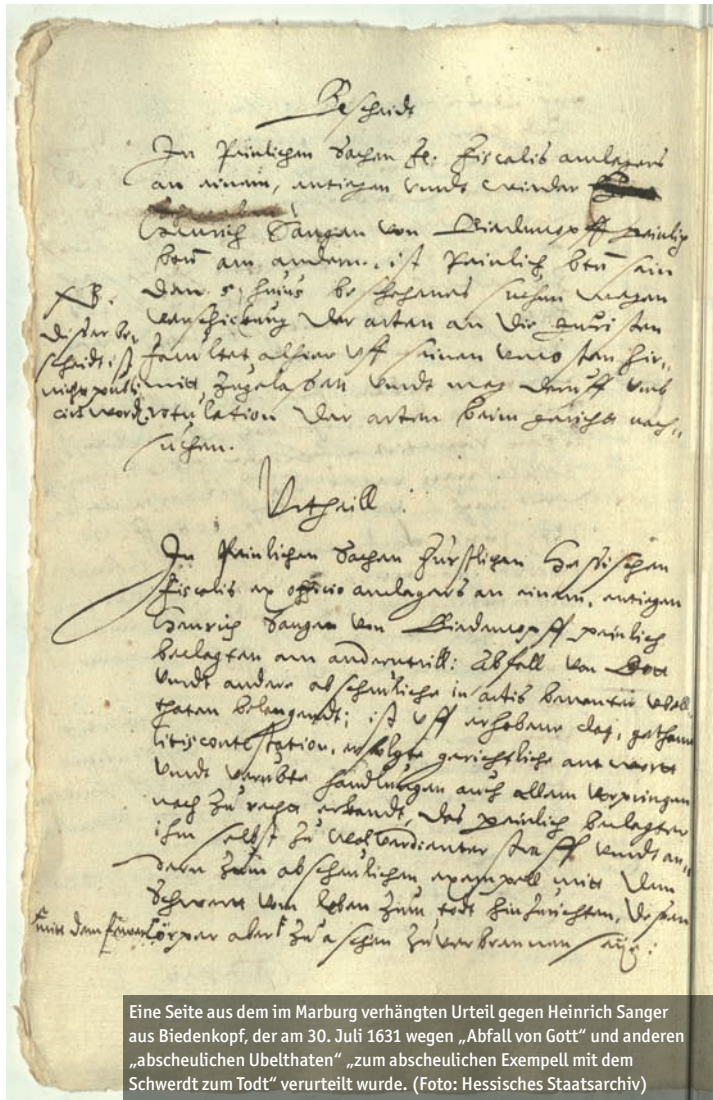 Bescheidt
In Peinlichen Sachen fs. Fiscalis anclegers
an einem, entgegen undt wieder
Henrich Sangen von Biedencopff peinlich
bekl am andern, ist Peinlich bekl sein
den 5. huius beschehenes suchen wegen
verschickung der acten an die Juristen
facultet alhier uff seinen uncosten hir„
mitt zugelassen undt mag deruff umb
rotulation der acten beim gericht nach„
suchen.
NB.
dieser be„
scheidt ist
nicht publi„
cirt word.
Urtheill
In Peinlichen Sachen Fürstlichen Hessischen
Fiscalis ex officio anclegers an einem, entgegen
Henrich Sangen von Biedencopff peinlich
beclagten am anderntheill: Abfall von Gott
undt andere abscheuliche in actis benente ubell
thaten belangendt; ist uff erhobene clag, gethane
litiscontestation, erfolgte gerichtliche antwortt
undt verübte handlungen auch allem vorpringen
nach zu recht erkandt, das peinlich beclagter
ihm selbst zu wolverdienter straff undt an„
dern zum abscheulichen exempell mitt dem
Schwertt vom leben zum todt hinzurichten, dessen
Cörper aber zu aschen zuverbrennen seye:
mitt dem fewer
Eine Seite aus dem im Marburg verhängten Urteil gegen Heinrich Sanger
aus Biedenkopf, der am 30. Juli 1631 wegen „Abfall von Gott“ und anderen
„abscheulichen Ubelthaten“ „zum abscheulichen Exempell mit dem
Schwerdt zum Todt“ verurteilt wurde. (Foto: Hessisches Staatsarchiv)